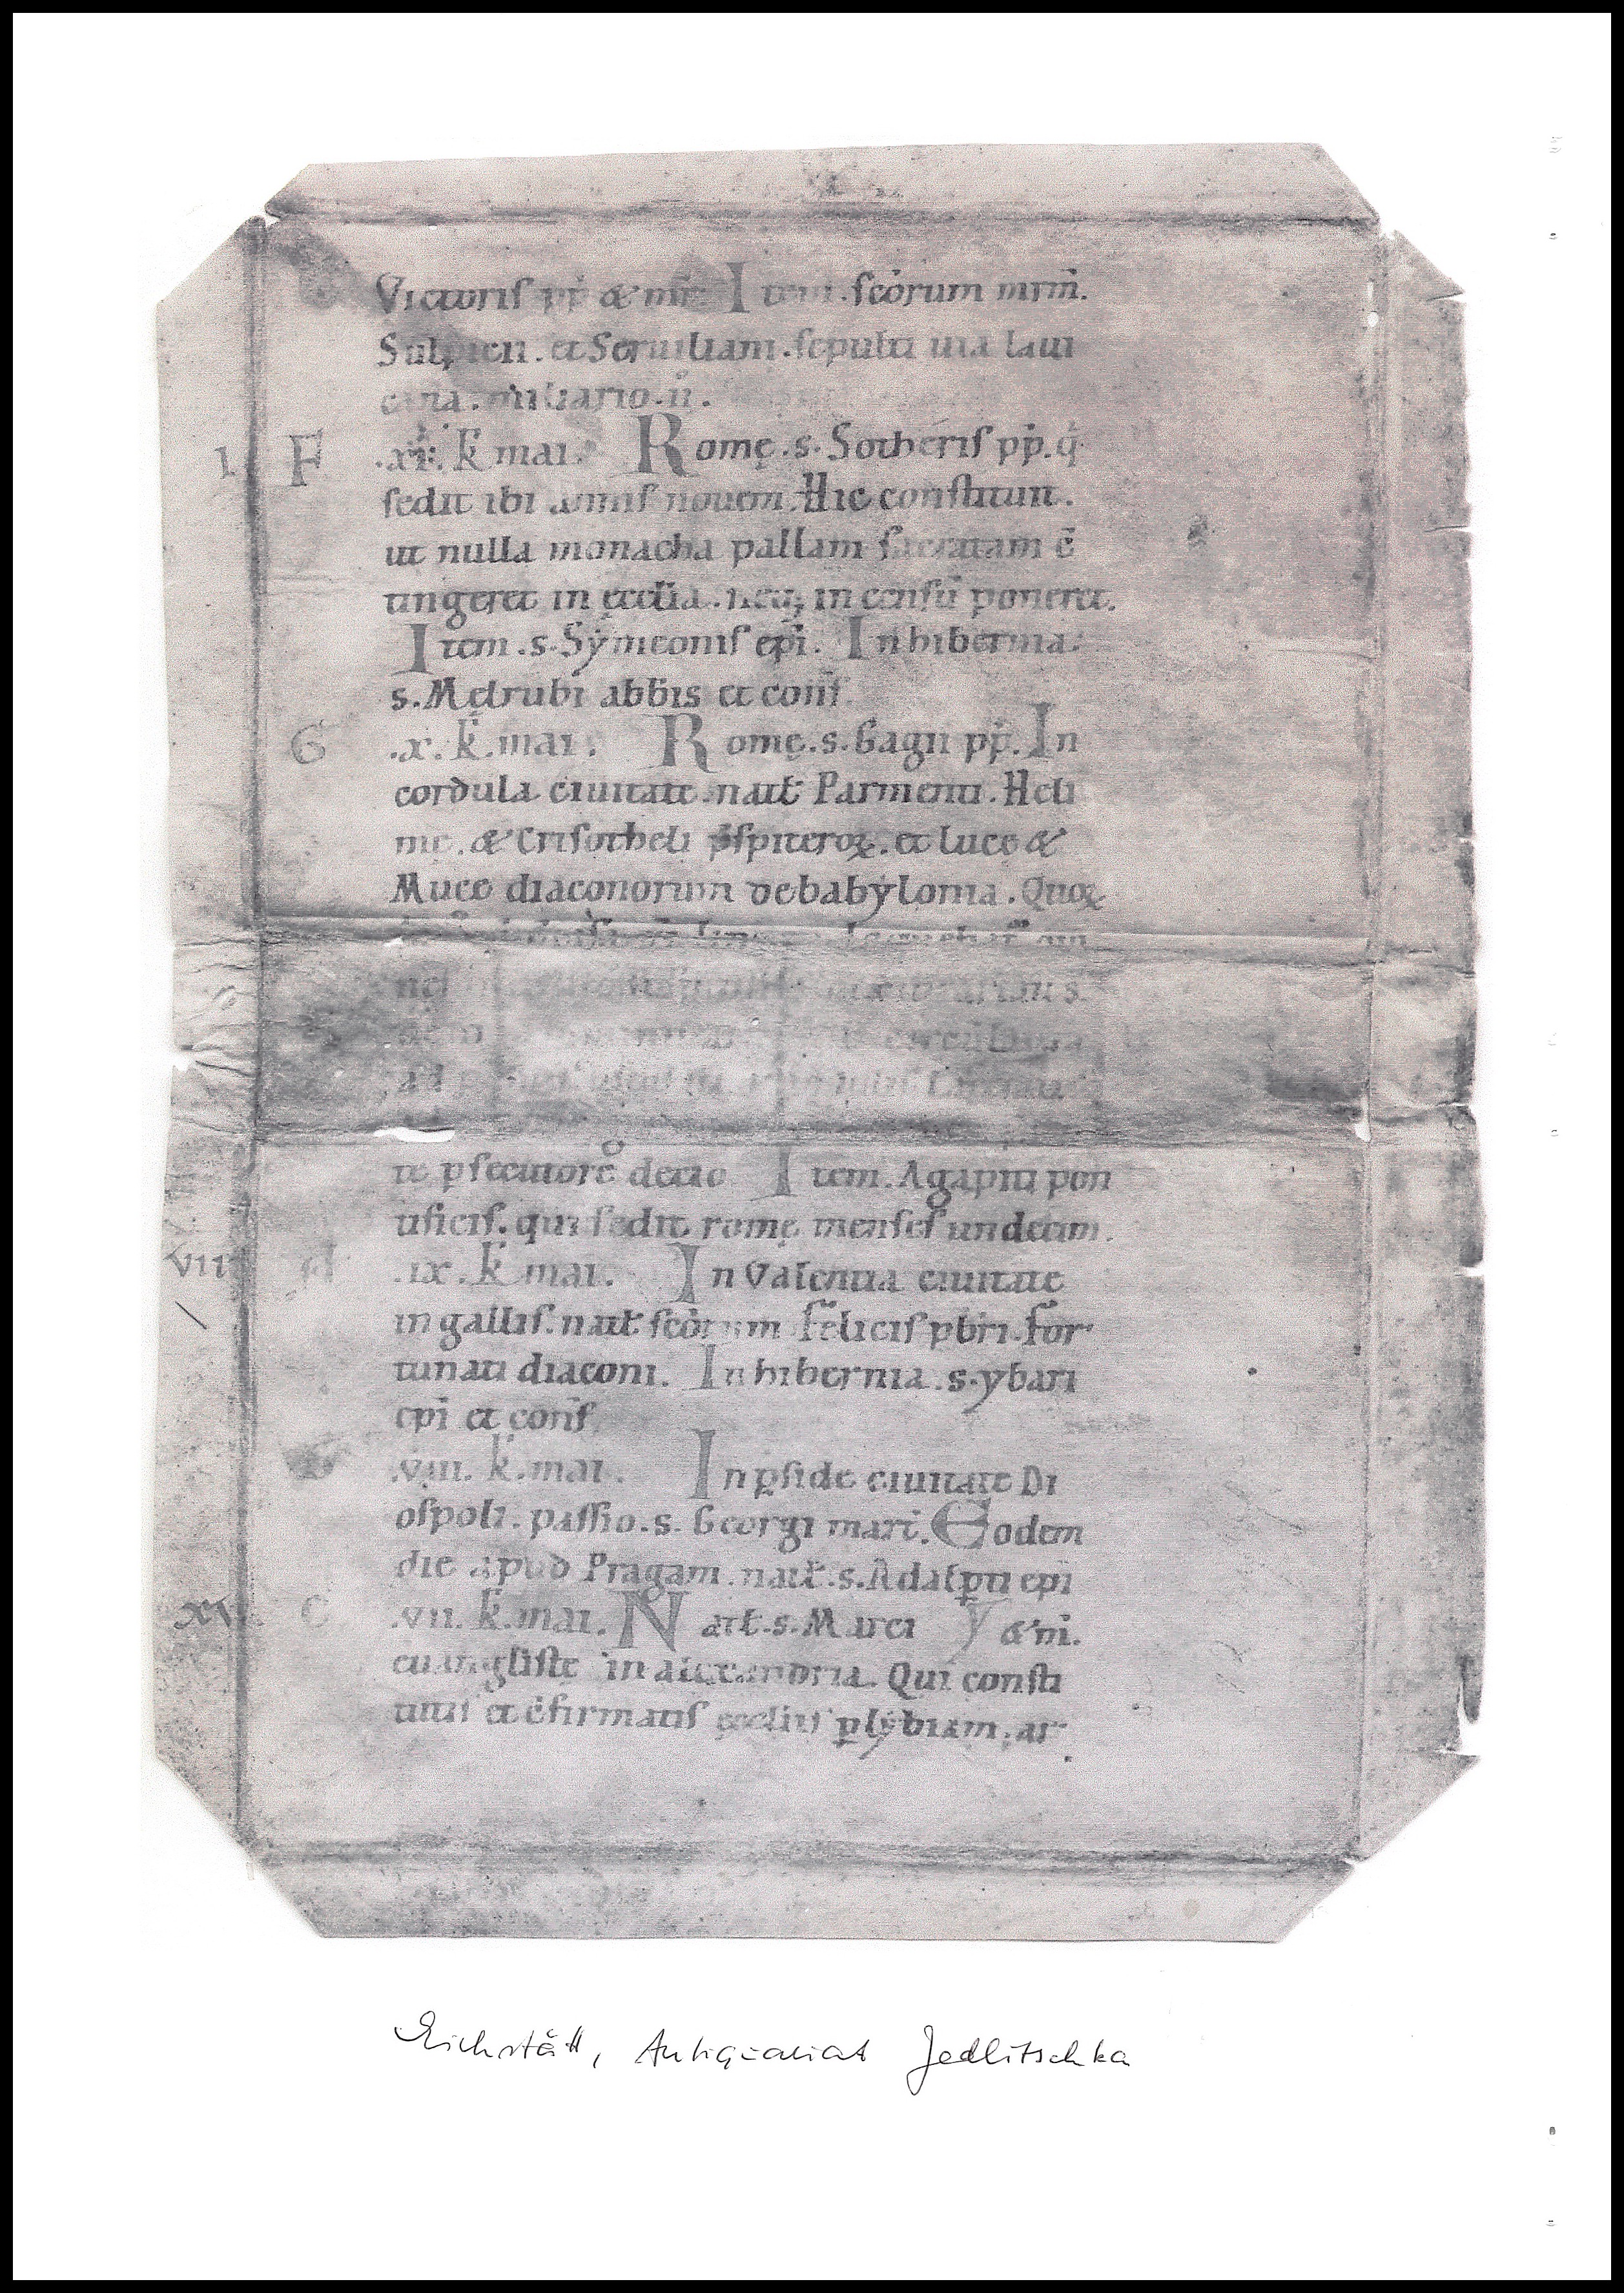 Victoris pp̄ & mr̄. Item. scōrum mrm̄.
Sulpicii. et Seruiliani. sepulti uia laui
cana. miliario. ii.
I F .xi. k̄ mai. Romę. s. Sotheris pp̄. q̄
sedit ibi annis nouem. Hic constituit.
ut nulla monacha pallam sacratam c̄
tingeret in ęcclīa. neq; in censū poneret.
Item. s. Sẏmeonis ep̄i. In hibernia.
s. Męlrubi abb̄is et conf̄
G .x. k̄. mai. Romę. s. Gagii pp̄. In
cordula ciuitate. natl̄ Parmenii. Heli
mę. & Crisotheli p̄sƀiteroꝝ. et luce &
Muce diaconorum de babylonia. Quoꝝ
te p̱secutorē decio Item. Agapiti pon
tificis. qui sedit romę menses undecim.
VII A .ix. k̄ mai. In Valentia ciuitate
in galliis. natl̄ scōrum felicis pb̄ri. for
tunati diaconi. In hibernia. s. ybari
ep̄i et conf̄
.viii. k̄. mai. In p̱side ciuitate Di
ospoli. passio. s. Georgi mart̄. Eodem
die apud Pragam. natl̄. s. Adalp̱ti ep̄i
XI C .vii. k̄. mai. Natl̄. s. Marci & m̄.
euanglīstę in alexandria. Qui consti
tutis et c̄firmatis ęccliis p̱ lẏbiam. ar
Eichstätt, Antiquariat Jedlitschka